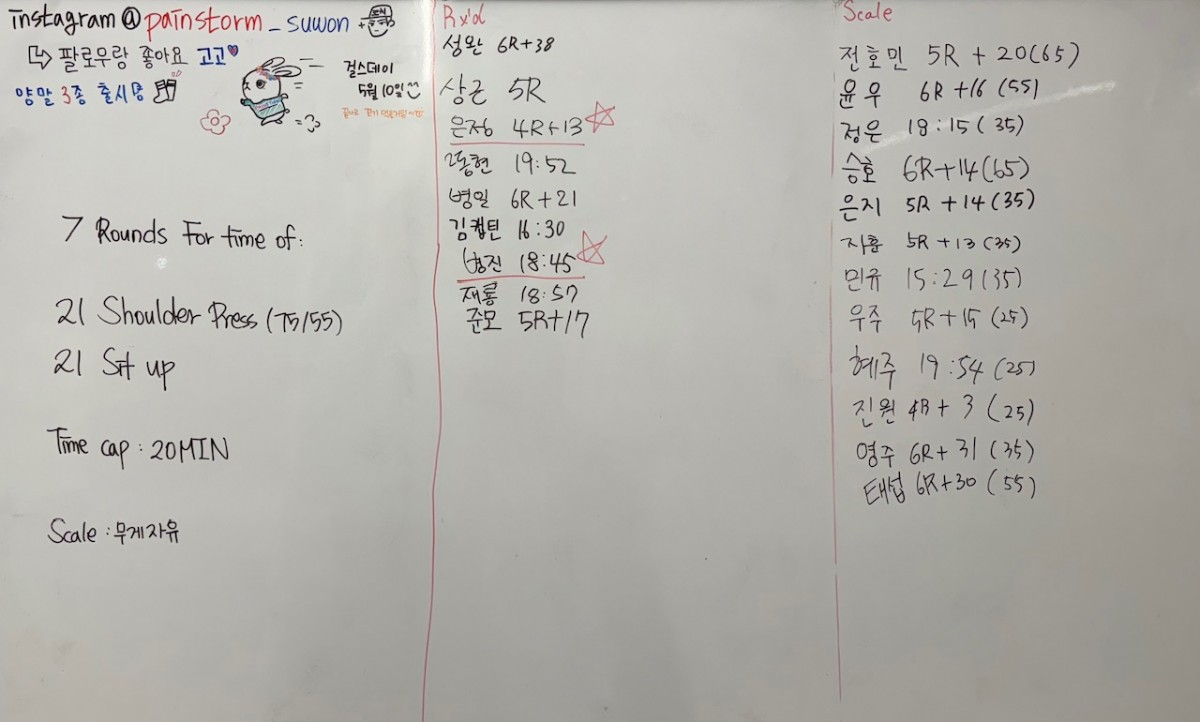 instagram@painstorm_suwon
팔로우랑 좋아요 고고
양말 3종 출시중
걸스데이
5월 10일
7 Rounds For time of:
21 Shoulder Press (75/55)
21 Sit up
Time cap : 20MIN
Scale : 무게자유
Rx'd
성완 6R+38
상근 5R
은정 4R+13
동현 19:52
병일 6R+21
김캡틴 16:30
병진 18:45
재룡 18:57
준모 5R+17
Scale
전호민 5R + 20(65)
윤우 6R+16 (55)
정은 18:15(35)
승호 6R+14(65)
은지 5R+14(35)
지훈 5R+13(35)
민유 15:29(35)
우주 5R+15 (25)
혜주 19:54 (25)
진원 4R+3 (25)
영주 6R+31 (35)
태섭 6R+30 (55)